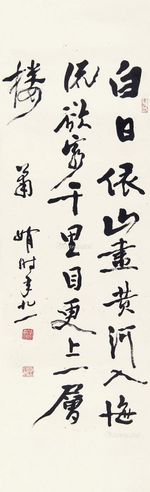 白日依山盡黄河入海
流欲窮千里目更上一層
楼
蕭嫻时年九一